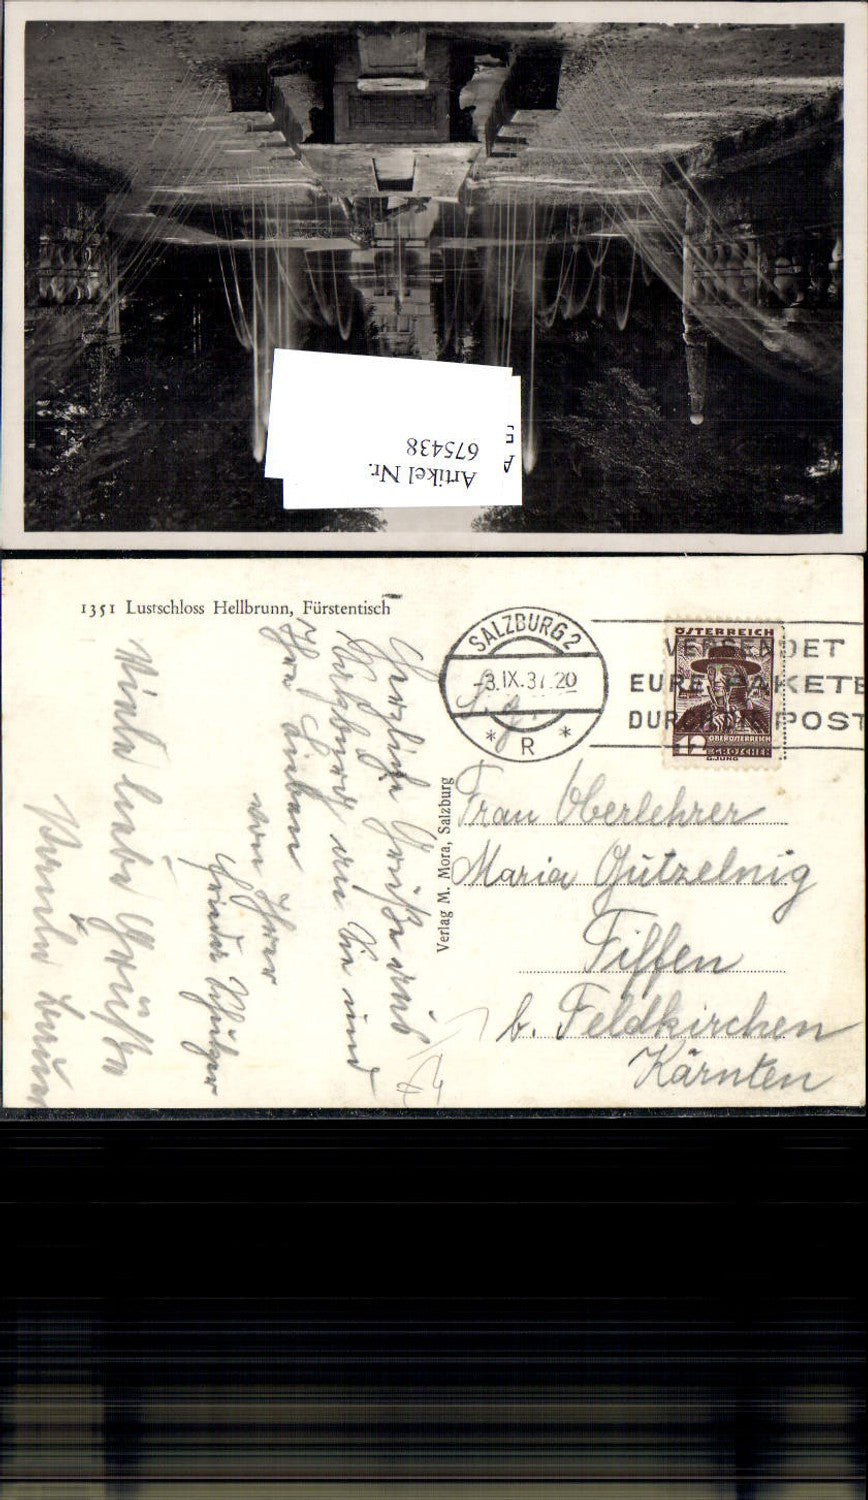 Artikel Nr.
675438
A
5
1351 Lustschloss Hellbrunn, Fürstentisch
SALZBURG 2
-3.IX.37.20
* R *
VERSENDET
EURE PAKETE
DURCH DIE POST
ÖSTERREICH
OBERÖSTERREICH
12 GROSCHEN
G.JUNG
Verlag M. Mora, Salzburg
Frau Oberlehrer
Maria Gutzelnig
Tiffen
b. Feldkirchen
Kärnten
Herzliche Grüße aus
Salzburg an Sie und
Ihre Lieben
von Ihrer
Viele liebe Grüße